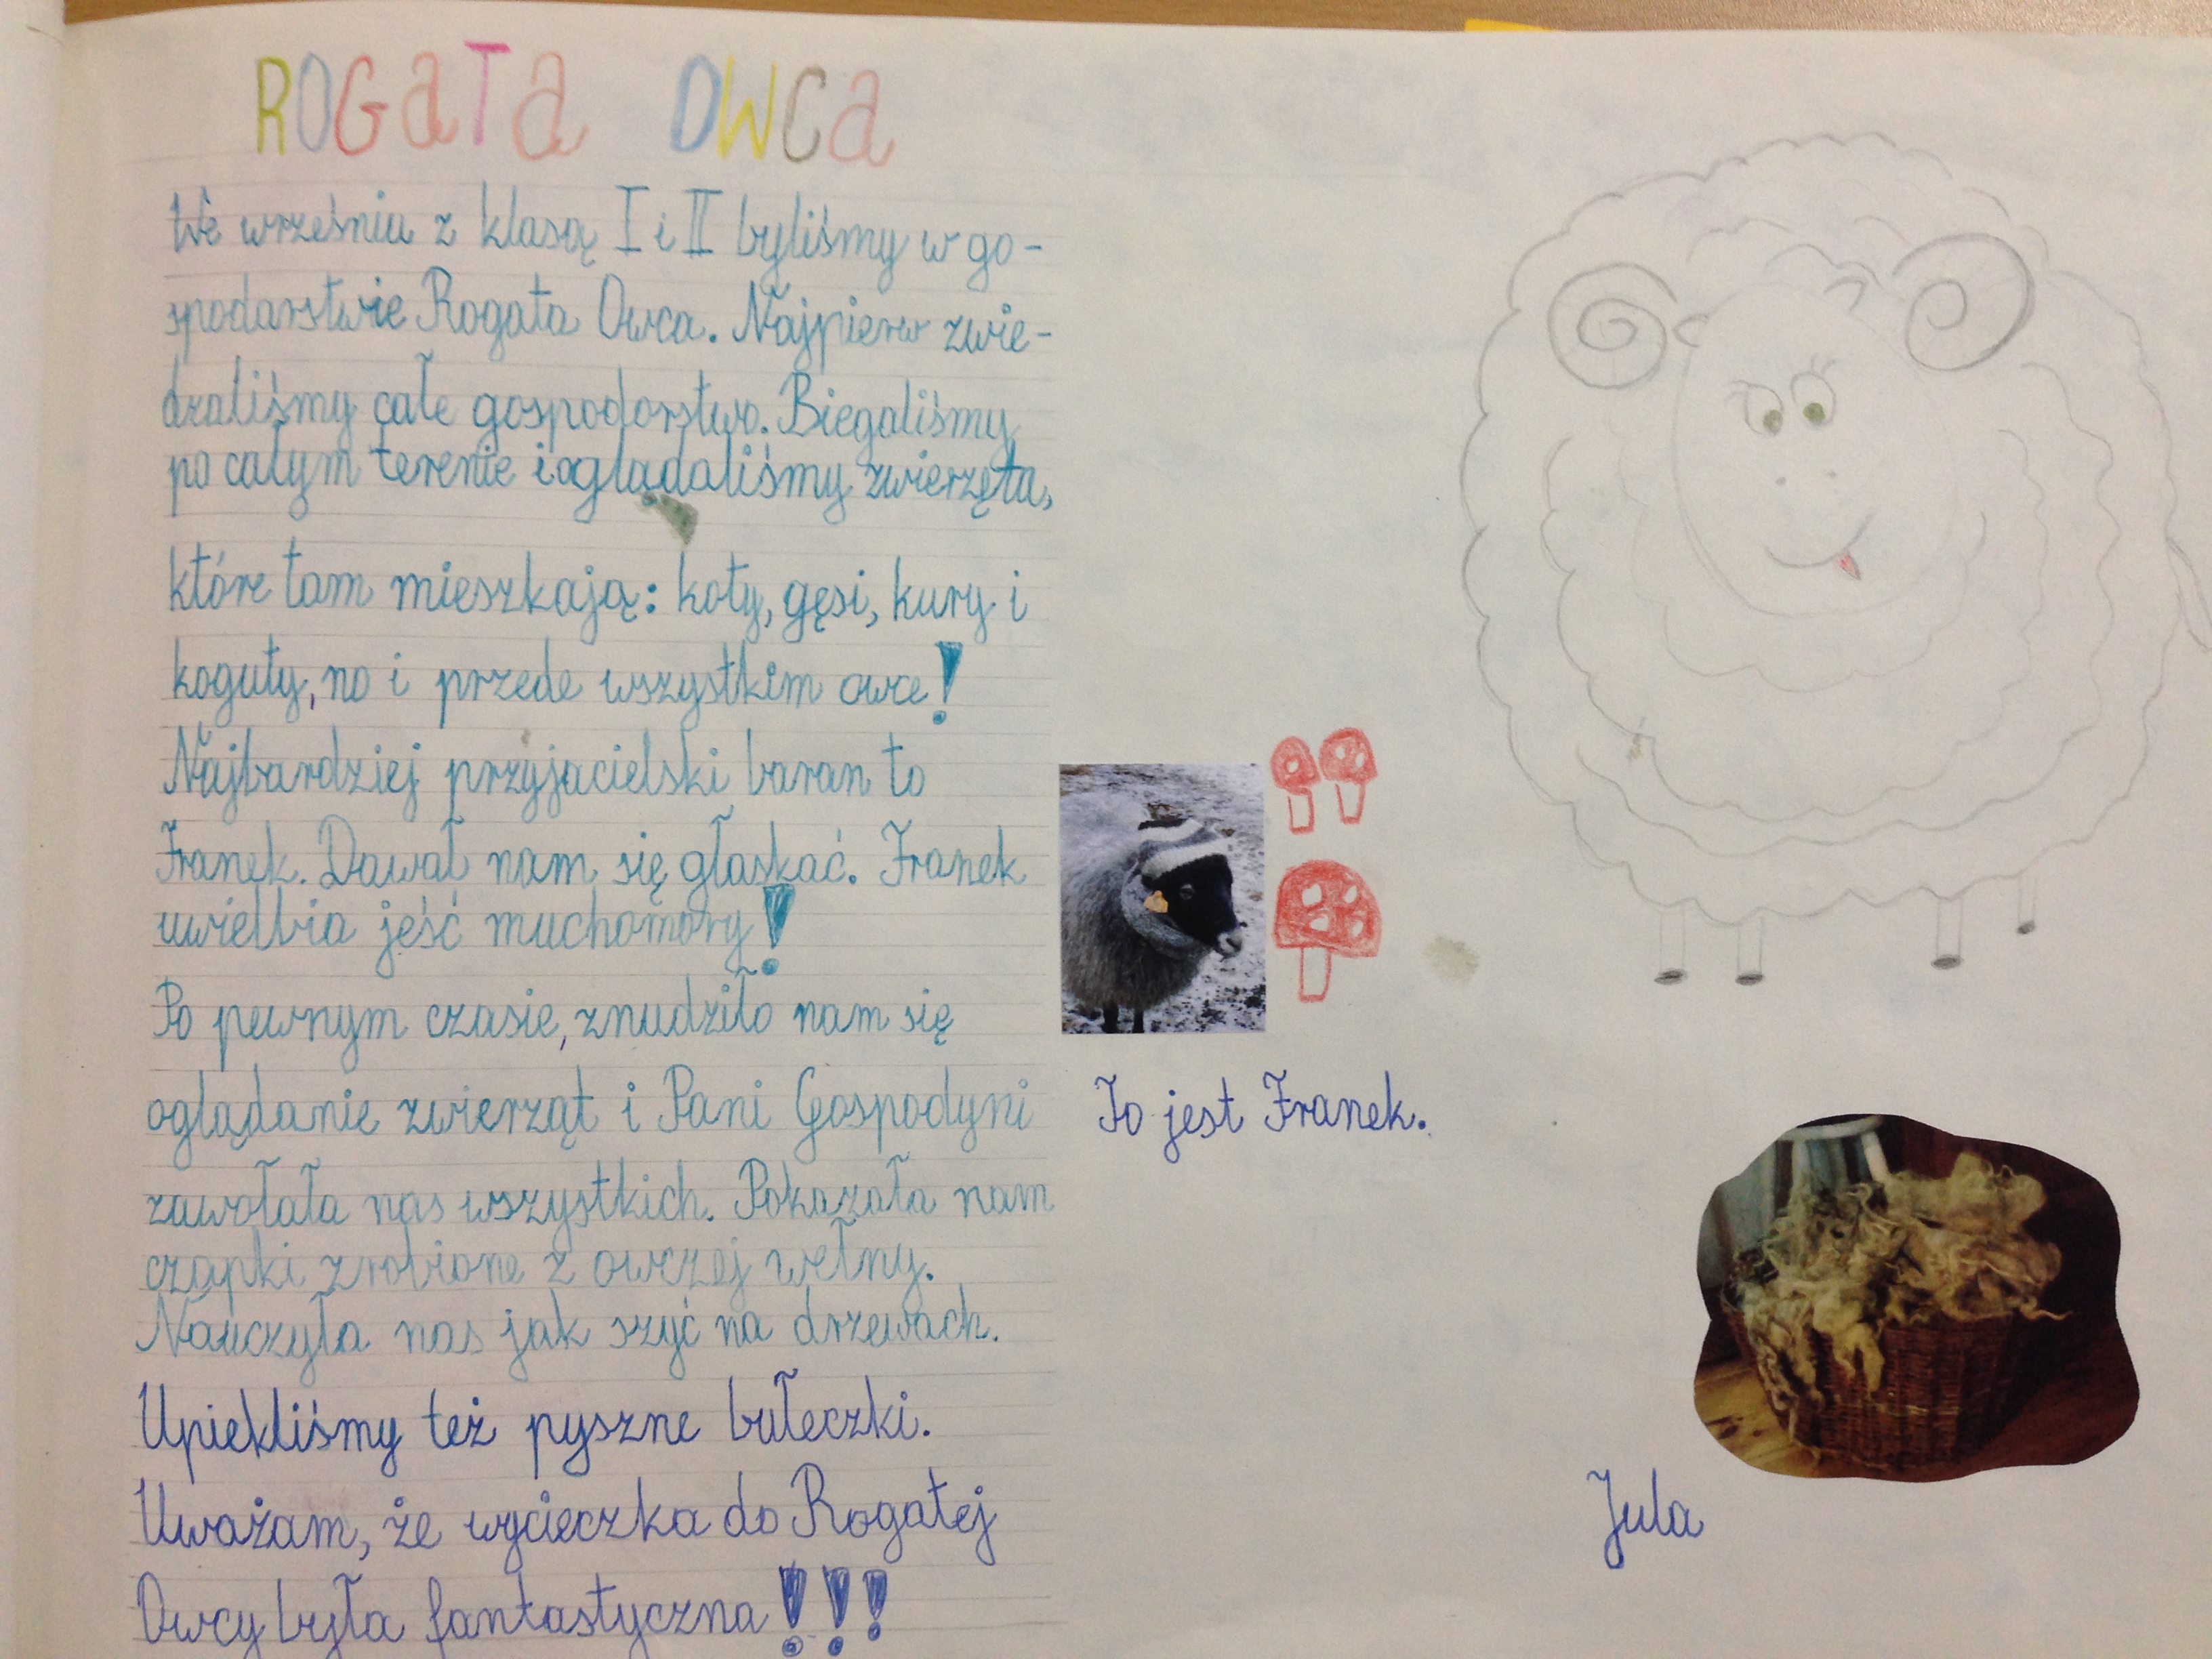 ROGATA OWCA
We wrześniu z klasą I i II byliśmy w go-
spodarstwie Rogata Owca. Najpierw zwie-
dzaliśmy całe gospodarstwo. Biegaliśmy
po całym terenie i oglądaliśmy zwierzęta,
które tam mieszkają: koty, gęsi, kury i
koguty, no i przede wszystkim owce!
Najbardziej przyjacielski baran to
Franek. Dawał nam się głaskać. Franek
uwielbia jeść muchomory!
Po pewnym czasie, znudziło nam się
oglądanie zwierząt i Pani Gospodyni
zawołała nas wszystkich. Pokazała nam
czapki zrobione z owczej wełny.
Nauczyła nas jak szyć na drzewach.
Upiekliśmy też pyszne bułeczki.
Uważam, że wycieczka do Rogatej
Owcy była fantastyczna!!!
To jest Franek.
Jula